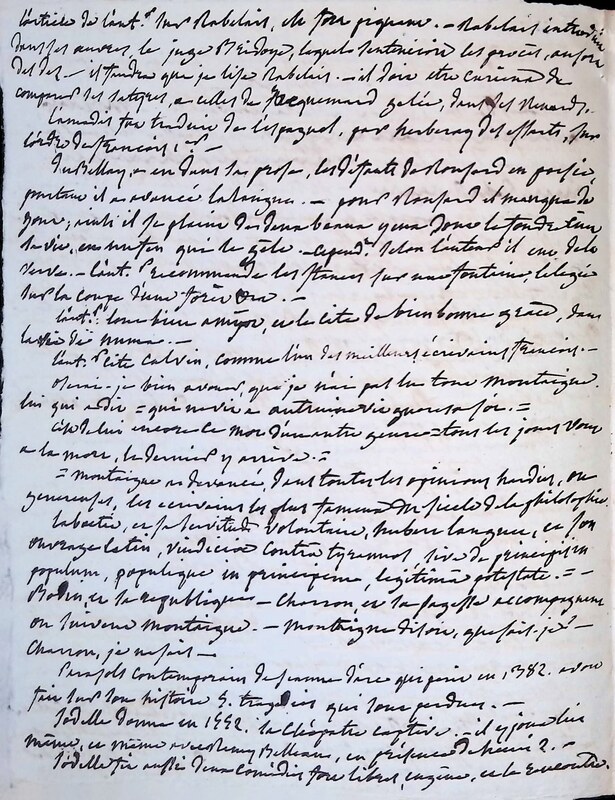 L'article de l'aut.r sur Rabelais, est fort piquant. - Rabelais introduit
dans ses œuvres, le juge Bridoye, lequel sentencioit les procès, au sort
des dés. - il faudra que je lise Rabelais. - il doit etre curieux de
comparer ses satyres, a celles de Jacquemard gelée, dans ses Renards. -
L'amadis fut traduit de l'espagnol, par herberay des essarts, sur
l'ordre de francois 1.er -
Du Bellay, a eu dans sa prose, les défauts de Ronsard en poésie,
pourtant il a avancé la langue. - pour Ronsard il manque de
gout; mais il se plaint de deux beaux yeux dont
sa vie, en un feu qui le gèle - cepend.t selon l'auteur il eut, de la
verve. - L'aut.r recommande les stances sur une fontaine, l'elegie
sur la coupe d'une forêt &a. -
L'aut.r loue bien amyot, et le cite de bien bonne grace, dans
la vie de numa. -
L'aut.r cite Calvin, comme l'un des meilleurs écrivains francois. -
oserai-je bien avouer, que je n'ai pas lu tout Montaigne.
lui qui a dit = qui ne vit a autrui ne vit guères a soi. =
C'est de lui encore ce mot d'un autre genre = tous les jours vont
a la mort, le dernier y arrive. =
= Montaigne a devancé, dans toutes les opinions hardies, ou
genereuses, les écrivains les plus fameux du siècle de la philosophie.
La boetie, et sa servitude volontaire, hubert languet, et son
ouvrage latin, vindiciæ contra tyrannos, sive de principis in
populum, populique in principem, legitimâ potestate. = -
Bodin, et sa republique - Charron, et la sagesse accompagnent
ou suivent montaigne. - Montaigne disoit, que sais-je? -
Charron, je ne sais -
Parasols contemporain de Jeanne d'arc qui périt en 1382. avoit
fait sur son histoire 5. tragedies qui sont perdues. -
Jodelle donna en 1552. la Cléopatre captive. - il y joua lui
même, et même avec Remy Belleau, en présence de henri 2. -
Jodelle fit aussi deux comédies fort libres, eugène, et la rencontre.